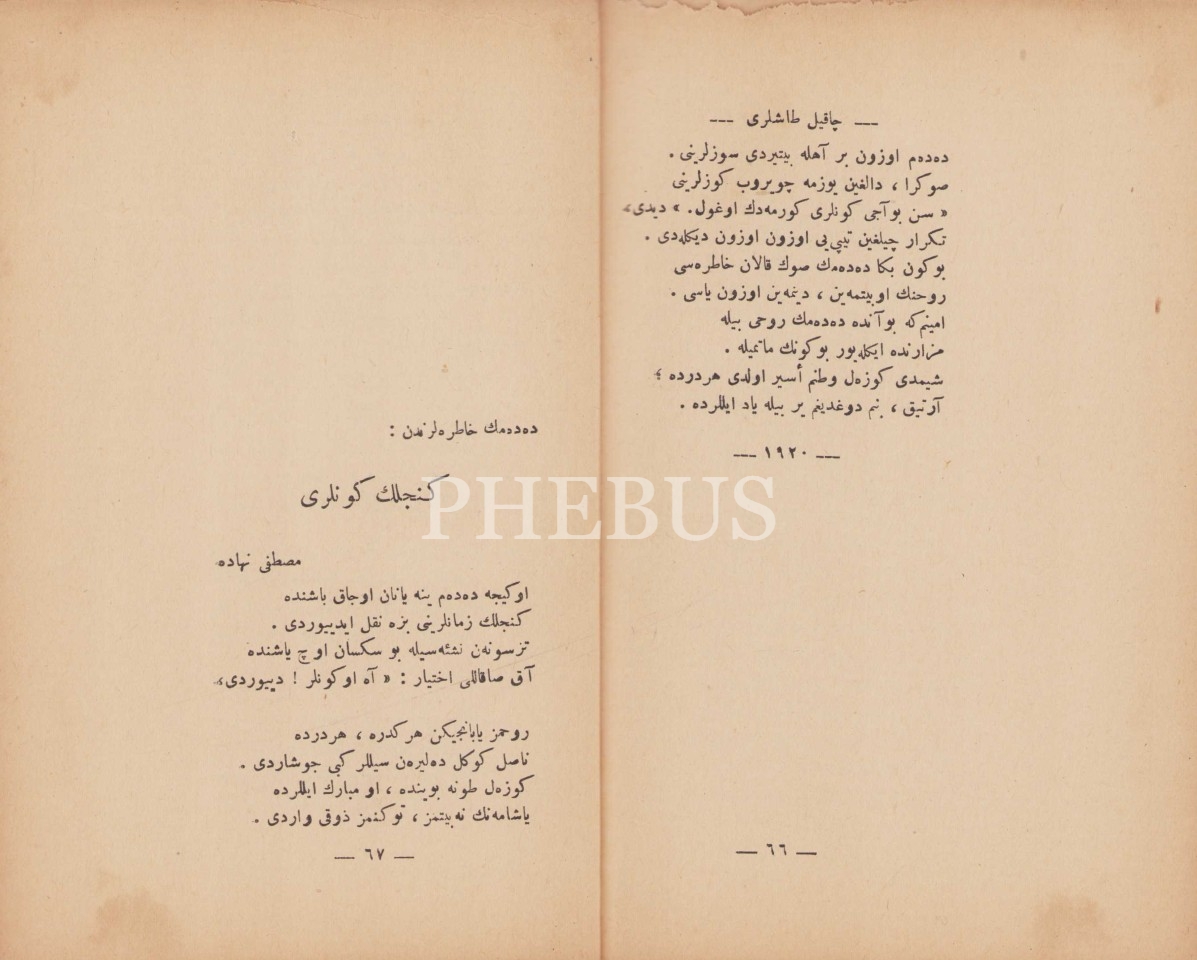 --- چاقیل طاشلری ---
دەدەم اوزون بر آهله بیتیردی سوزلرینی .
صوکرا ، دالغین یوزمه چویروب کوزلرینی
« سن بو آجی کونلری کورمەدك اوغول. » دیدی،
تکرار چیلغین تیپی یی اوزون اوزون دیکلەدی .
بوکون بکا دەدەمك صوك قالان خاطرەسی
روحنك اوبیتمەین ، دینمەین اوزون یاسی .
امینم که بوآنده دەدەمك روحی بیله
مزارنده ایکلەیور بوکونك ماتمیله .
شیمدی کوزەل وطنم أسیر اولدی هردرده ؛
آرتیق ، بنم دوغدیغم یر بیله یاد ایللرده .
--- ۱۹۲۰ ---
— ٦٦ —
دەدەمك خاطرەلرندن :
کنجلك کونلری
مصطفی نهاده
اوکیجه دەدەم ینه یانان اوجاق باشنده
کنجلك زمانلرینی بزه نقل ایدییوردی .
تزسونەن نشئەسیله بو سکسان اوچ یاشنده
آق صاقاللی اختیار : « آه اوکونلر ! دییوردی،
روحمز یابانجیکن هرکدره ، هردرده
ناصل کوکل دەلیرەن سیللر کبی جوشاردی .
کوزەل طونه بوینده ، او مبارك ایللرده
یاشامەنك نەبیتمز ، توکنمز ذوقی واردی .
— ٦٧ —
PHEBUS